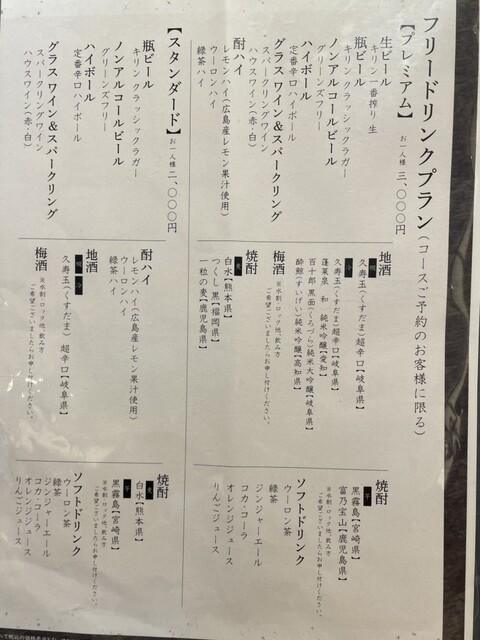 フリードリンクプラン（コースご予約のお客様に限る）
【プレミアム】 お一人様 三、〇〇〇円
生ビール
キリン 一番搾り 生
瓶ビール
キリン クラッシックラガー
ノンアルコールビール
グリーンズフリー
ハイボール
定番辛口ハイボール
グラス ワイン＆スパークリング
スパークリングワイン
ハウスワイン（赤・白）
酎ハイ
レモンハイ（広島産レモン果汁使用）
ウーロンハイ
緑茶ハイ
地酒
久寿玉（くすだま）超辛口【岐阜県】
久寿玉（くすだま）超辛口【岐阜県】
蓬莱泉 和 純米吟醸【愛知】
百十郎 黒面（くろづら）純米大吟醸【岐阜県】
酔鯨（すいげい）純米吟醸【高知県】
梅酒
※水割・ロック他、飲み方
ご希望ございましたらお申し付けください。
焼酎
麦
白水【熊本県】
つくし 黒【福岡県】
一粒の麦【鹿児島県】
焼酎
芋
黒霧島【宮崎県】
富乃宝山【鹿児島県】
※水割・ロック他、飲み方
ご希望ございましたらお申し付けください。
ソフトドリンク
ウーロン茶
緑茶
ジンジャーエール
コカ・コーラ
オレンジジュース
りんごジュース
【スタンダード】 お一人様 二、〇〇〇円
瓶ビール
キリン クラッシックラガー
ノンアルコールビール
グリーンズフリー
ハイボール
定番辛口ハイボール
グラス ワイン＆スパークリング
スパークリングワイン
ハウスワイン（赤・白）
酎ハイ
レモンハイ（広島産レモン果汁使用）
ウーロンハイ
緑茶ハイ
地酒
久寿玉（くすだま）超辛口【岐阜県】
梅酒
※水割・ロック他、飲み方
ご希望ございましたらお申し付けください。
焼酎
麦
白水【熊本県】
芋
黒霧島【宮崎県】
※水割・ロック他、飲み方
ご希望ございましたらお申し付けください。
ソフトドリンク
ウーロン茶
緑茶
ジンジャーエール
コカ・コーラ
オレンジジュース
りんごジュース